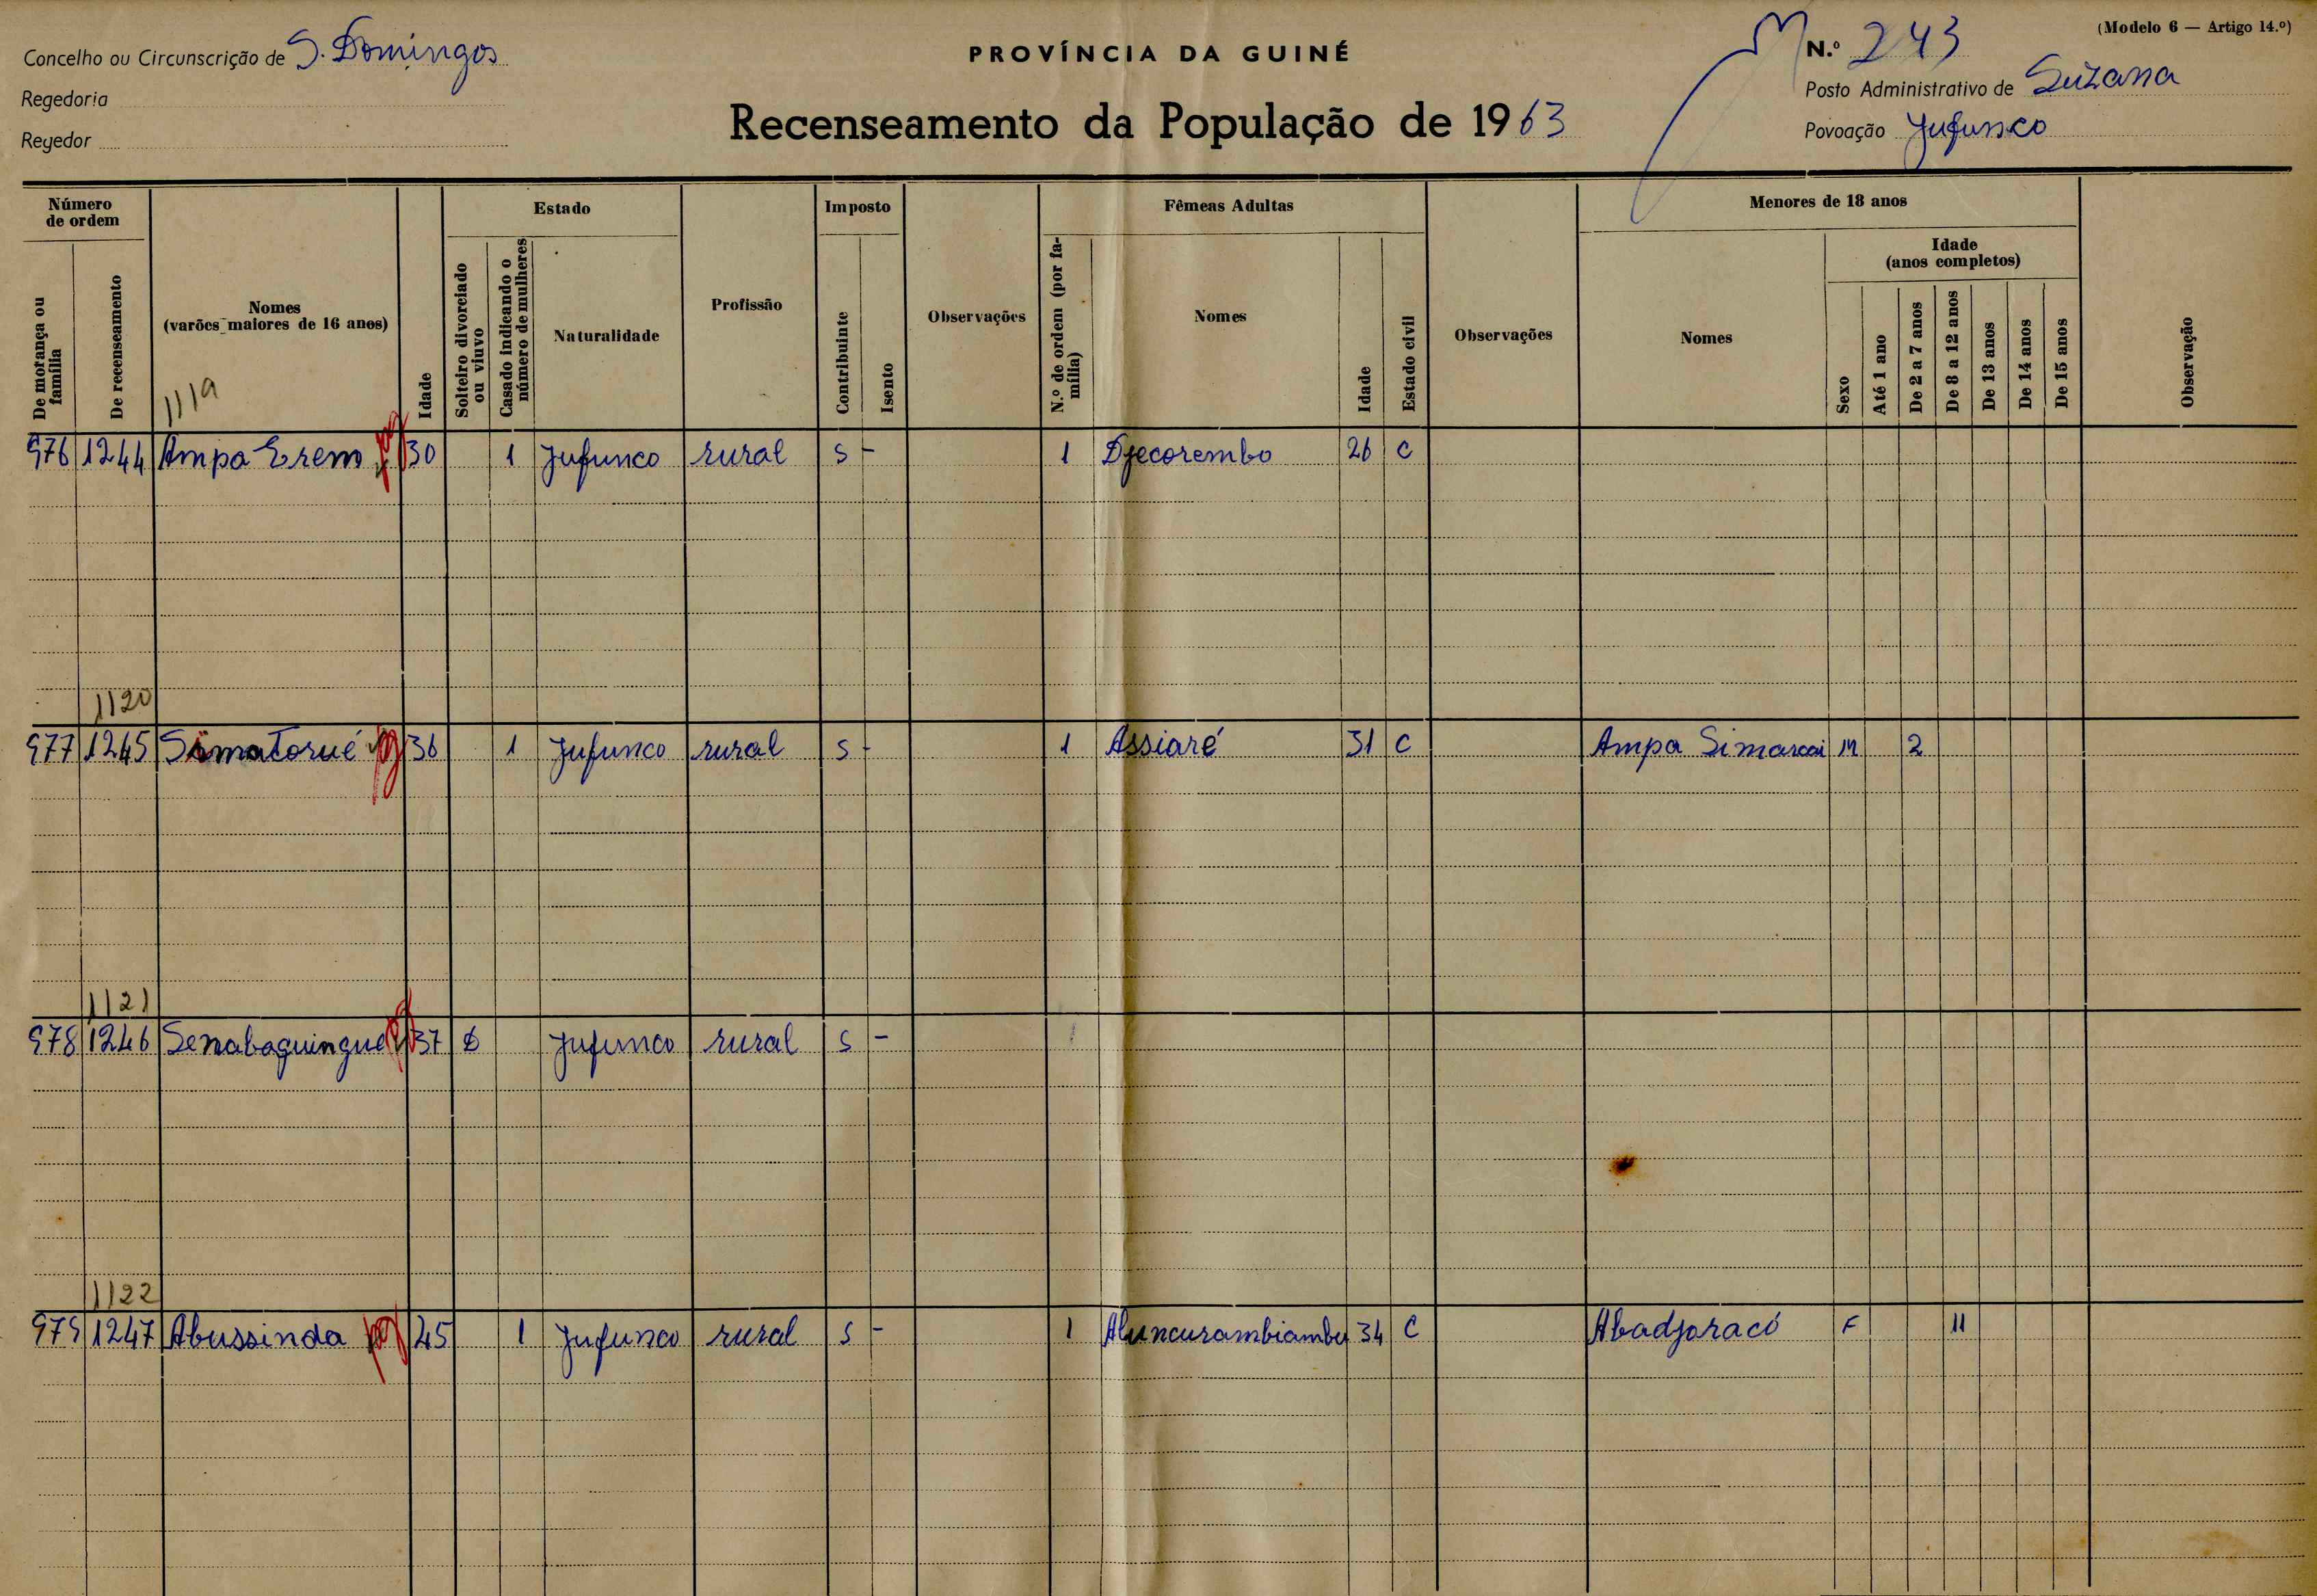 (Modelo 6 — Artigo 14.º)
Concelho ou Circunscrição de S. Domingos
PROVÍNCIA DA GUINÉ
N.º 243
Regedoria
Posto Administrativo de Suzana
Regedor
Recenseamento da População de 1963
Povoação Jufunco
Número de ordem
Estado
Imposto
Fêmeas Adultas
Menores de 18 anos
De morança ou família
De recenseamento
Nomes (varões maiores de 16 anos)
Idade
Solteiro divorciado ou viuvo
Casado indicando o número de mulheres
Naturalidade
Profissão
Contribuinte
Isento
Observações
N.º de ordem (por família)
Nomes
Idade
Estado civil
Observações
Nomes
Sexo
Idade (anos completos)
Até 1 ano
De 2 a 7 anos
De 8 a 12 anos
De 13 anos
De 14 anos
De 15 anos
Observação
1119
976 1244 Ampa Erem 30 1 Jufunco rural S - 1 Djecorembo 26 C
1120
977 1245 Simatorué 36 1 Jufunco rural S - 1 Assiaré 31 C Ampa Simarcai M 2
1121
978 1246 Senabaguingue 37 Jufunco rural S -
1122
979 1247 Abussinda 45 1 Jufunco rural S - 1 Aluncurambiambu 34 C Abadjoracó F 11